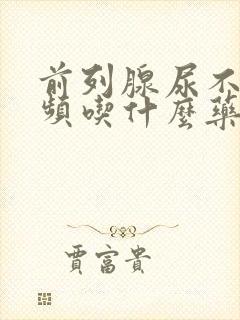 前列腺尿不
頻喫什麼藥
賈富貴